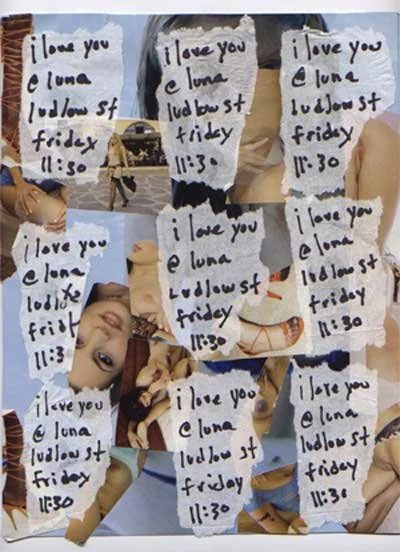 i love you
@ luna
ludlow st
friday
11:30
i love you
@ luna
ludlow st
friday
11:30
i love you
@ luna
ludlow st
friday
11:30
i love you
@ luna
11:3
i love you
@ luna
Ludlow st
friday
11:30
i love you
@ luna
ludlow st
friday
11:30
i love you
@ luna
ludlow st
friday
11:30
i love you
@ luna
ludlow st
friday
11:30
i love you
@ luna
ludlow st
friday
11:30